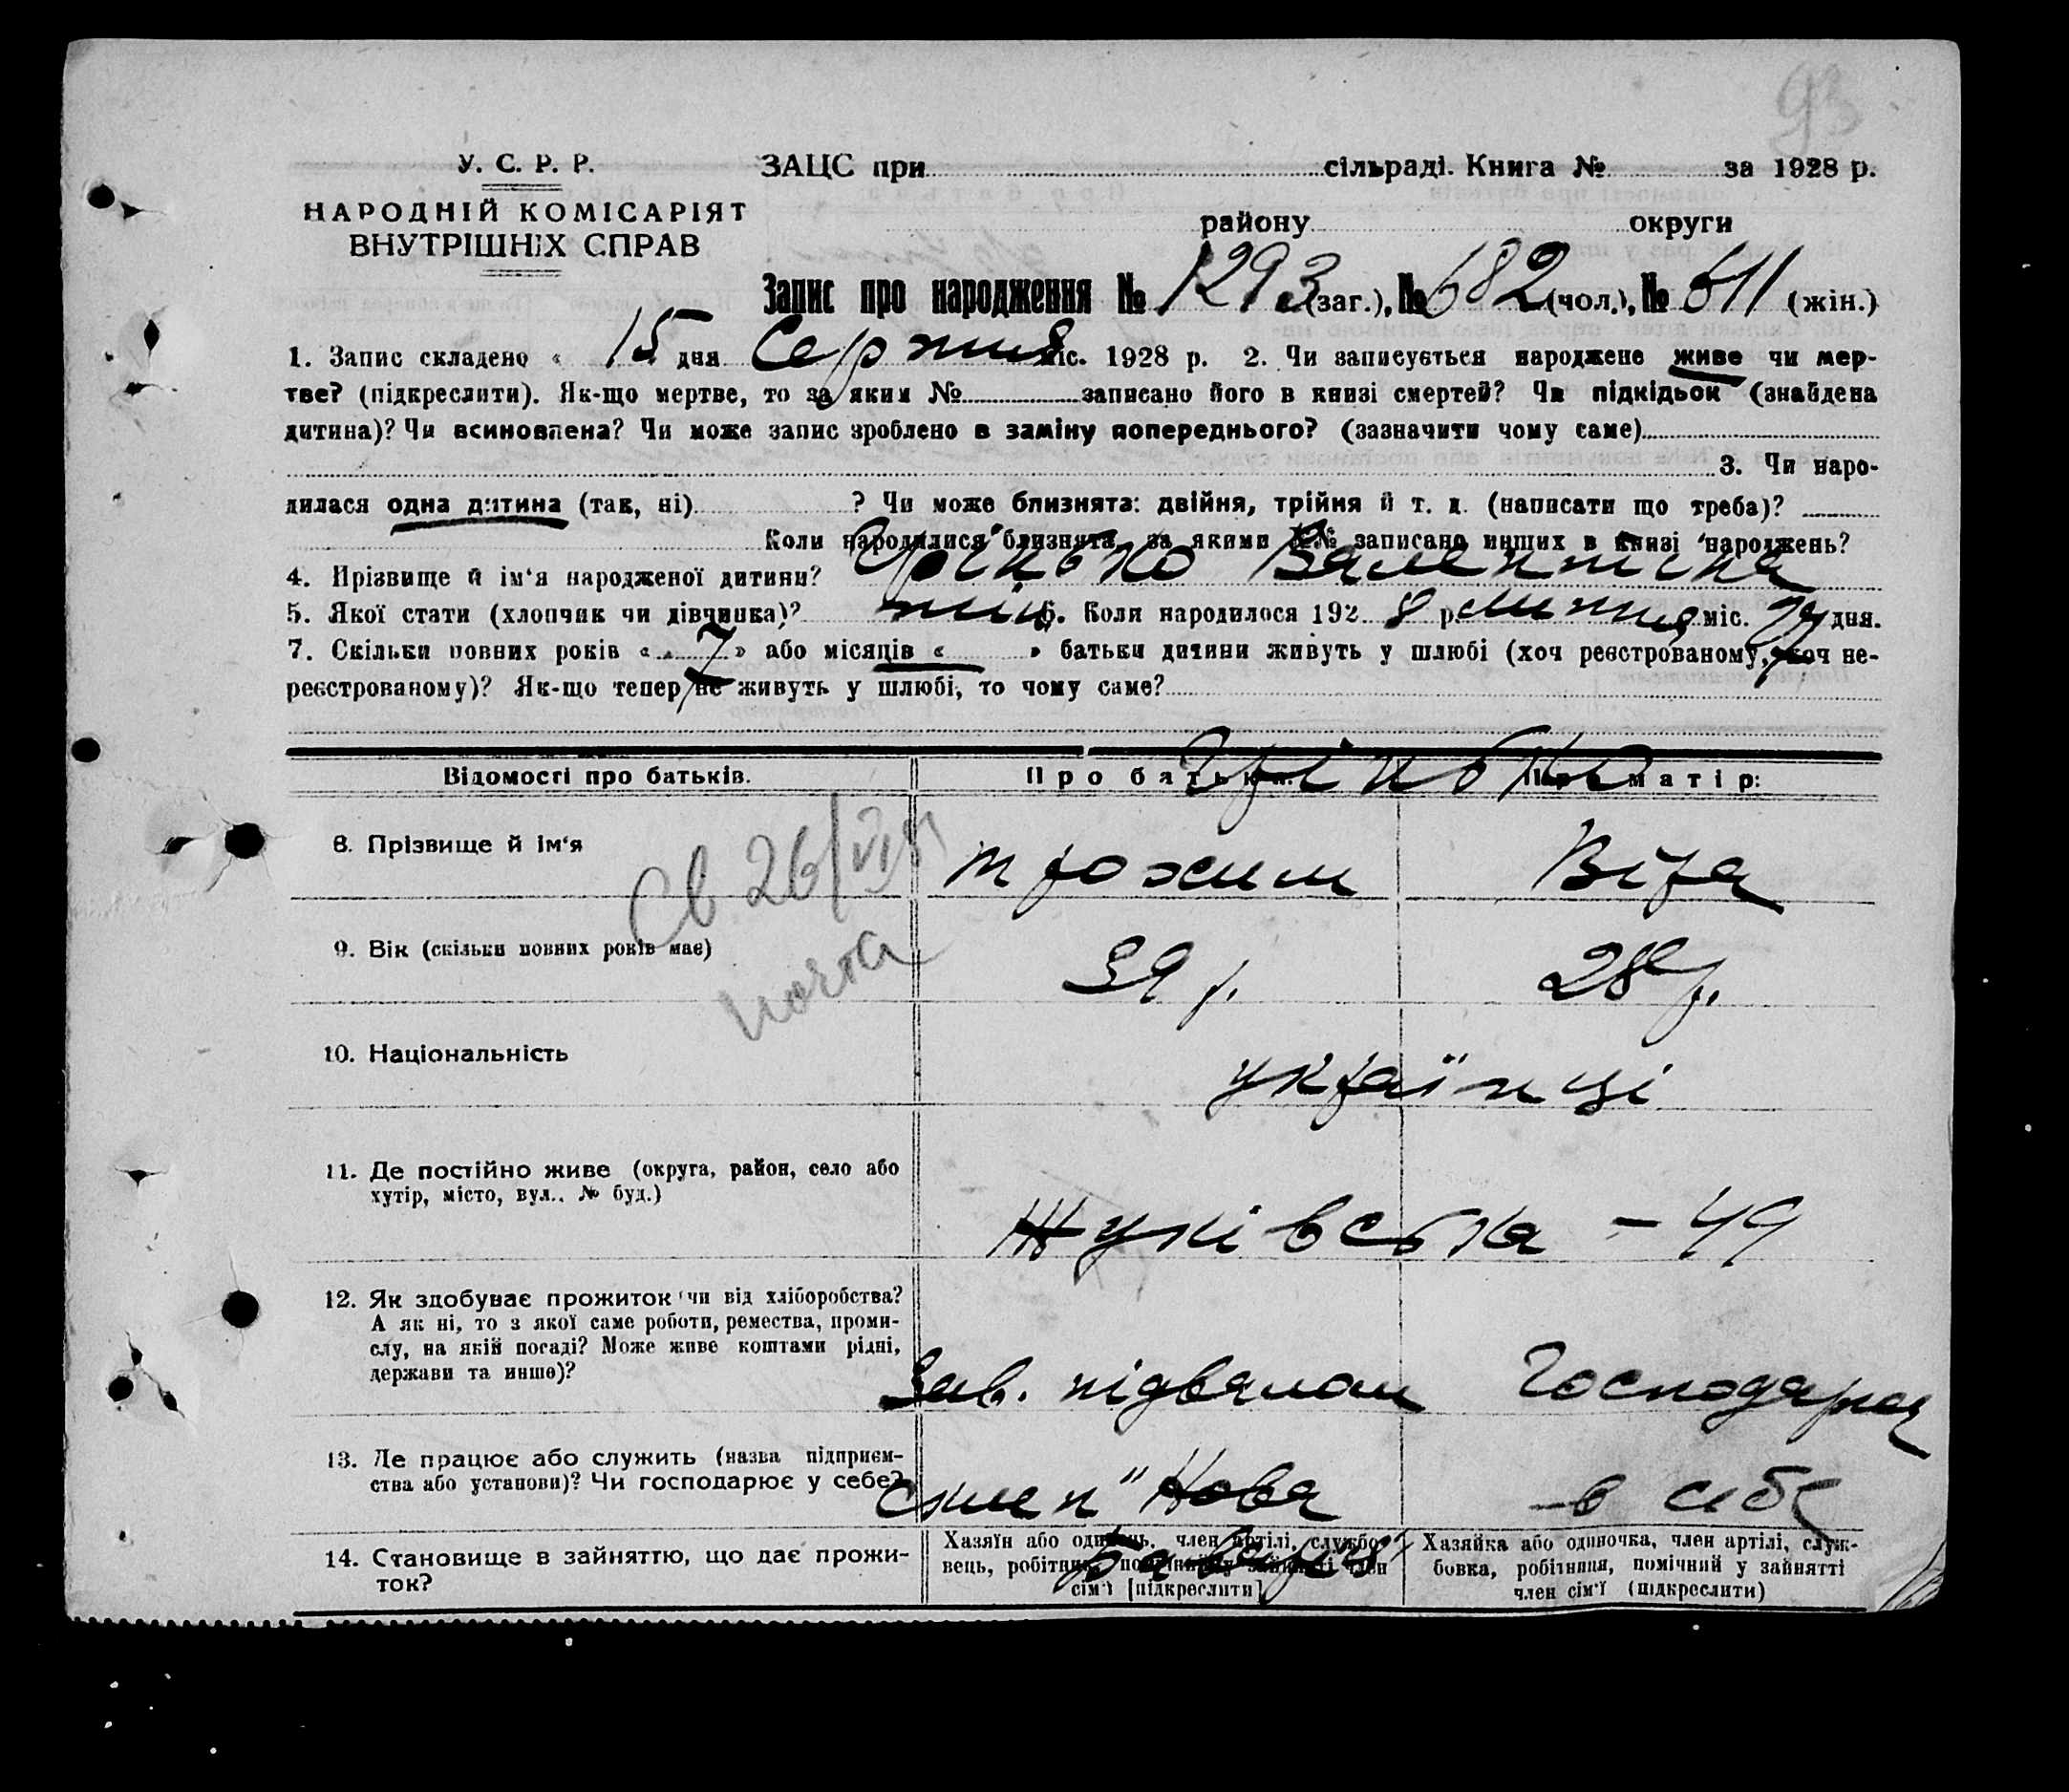 93
У. С. Р. Р.
НАРОДНІЙ КОМІСАРІЯТ
ВНУТРІШНІХ СПРАВ
ЗАЦС при сільраді. Книга № за 1928 р.
району округи
Запис про народження № 1293 (заг.), № 682 (чол.), № 611 (жін.)
1. Запис складено « 15 » дня Серпня міс. 1928 р. 2. Чи записується народжене живе чи мер-
тве? (підкреслити). Як-що мертве, то за яким № записано його в книзі смертей? Чи підкідьок (знайдена
дитина)? Чи всиновлена? Чи може запис зроблено в заміну попереднього? (зазначити чому саме)
3. Чи наро-
дилася одна дитина (так, ні) ? Чи може близнята: двійня, трійня й т. д. (написати що треба)?
Коли народилися близнята, за якими №№ записано инших в книзі народжень?
4. Прізвище й ім‘я народженої дитини? Грінько Валентіна
5. Якої стати (хлопчик чи дівчинка)? жін. 6. Коли народилося 192 8 р. липня міс. дня.
7. Скільки повних років « 7 » або місяців « » батьки дитини живуть у шлюбі (хоч реєстрованому, хоч не-
реєстрованому)? Як-що тепер не живуть у шлюбі, то чому саме?
Відомості про батьків. Про батька: Про матір:
Грінько
8. Прізвище й ім‘я Трохим Віра
Св 26/VII
почта
9. Вік (скільки повних років має) 39 р. 28 р.
10. Національність українці
11. Де постійно живе (округа, район, село або
хутір, місто, вул., № буд.)
Жуківська - 49
12. Як здобуває прожиток чи від хліборобства?
А як ні, то з якої саме роботи, ремества, проми-
слу, на якій посаді? Може живе коштами рідні,
держави та инше)?
Зав. підвалом Господарка
13. Де працює або служить (назва підприєм-
ства або установи)? Чи господарює у себе?
"Нова Баварія" в себе
14. Становище в зайняттю, що дає прожи-
ток?
Хазяїн або одинець, член артілі, службо-
вець, робітник, помічний у зайнятті член
сім‘ї [підкреслити]
Хазяйка або одиночка, член артілі, служ-
бовка, робітниця, помічний у зайнятті
член сім‘ї (підкреслити)